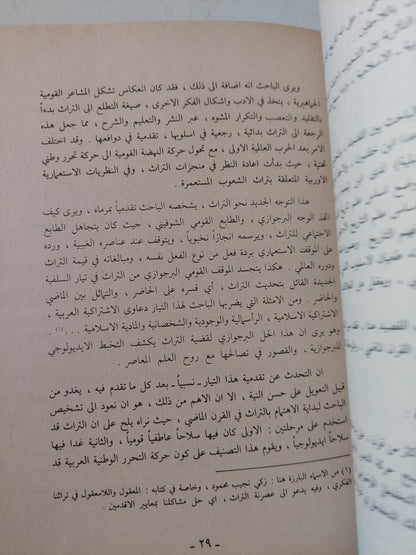 ويرى الباحث انه اضافة الى ذلك ، فقد كان انعكاس تشكل المشاعر القومية
الجماهيرية ، يتخذ في الادب واشكال الفكر الاخرى ، صيغة التطلع الى التراث بدءاً
بالتقليد والتعصب والتكرار المشوه ، عبر النشر والتعليم والشرح ، مما جعل هذه
الرجعة الى التراث بدائية ، رجعية في اسلوبها ، تقدمية في دوافعها . وقد اختلف
الامر بعد الحرب العالمية الاولى ، مع تحول حركة النهضة القومية الى حركة تحرر وطني
تحتية ، حيث بدأت اعادة النظر في منجزات التراث ، وفي النظريات الاستعمارية
الاوربية المتعلقة بتراث الشعوب المستعمرة .
هذا التوجه الجديد نحو التراث ، يشخصه الباحث تقدمياً بمرماه ، ويرى كيف
اتخذ الوجه البرجوازي ، والطابع القومي الشوفيني ، حيث كان يتجاهل الطابع
الاجتماعي للتراث ، ويرسمه انجازاً نخبوياً ، ويتوقف عند عناصره الغيبية ، ورده
على الموقف الاستعماري بردة فعل من نوع الفعل نفسه ، ومبالغاته في قيمة التراث
ودوره العالمي . هكذا يتجسد الموقف القومي البرجوازي من التراث في تيار السلفية
الجديدة القائل بتحديث التراث ، أي قسره على الحاضر ، والتماثل بين الماضي
والحاضر . ومن الامثلة التي يضربها الباحث لهذا التيار دعاوى الاشتراكية العربية ،
الاشتراكية الاسلامية ، الرأسمالية والوجودية والشخصانية والمادية الاسلامية . . .(١)
وهو يرى ان هذا الحل البرجوازي لقضية التراث يكشف التخبط الايديولوجي
للبرجوازية ، والقصور في تصالحها مع روح العلم المعاصر .
ان التحدث عن تقدمية هذا التيار ـ نسبياً ـ بعد كل ما تقدم فيه ، يغدو من
قبيل التعويل على حسن النية ، الا ان الاهم من ذلك ، هو ان نعود الى تشخيص
الباحث لبداية الاهتمام بالتراث في القرن الماضي ، حيث نراه يلح على ان التراث قد
استخدم على مرحلتين : الاولى كان فيها سلاحاً عاطفياً قومياً ، والثانية غدا فيها
سلاحاً ايديولوجياً ، ويقوم هذا التصنيف على كون حركة التحرر الوطنية العربية قد
(١) من الاسماء البارزة هنا : زكي نجيب محمود ، وخاصة في كتابه : المعقول واللامعقول في تراثنا
الفكري ، وفيه يدعو الى عصرنة التراث ، اي حل مشاكلنا بمعايير الاقدمين .
ـ ٢٩ ـ